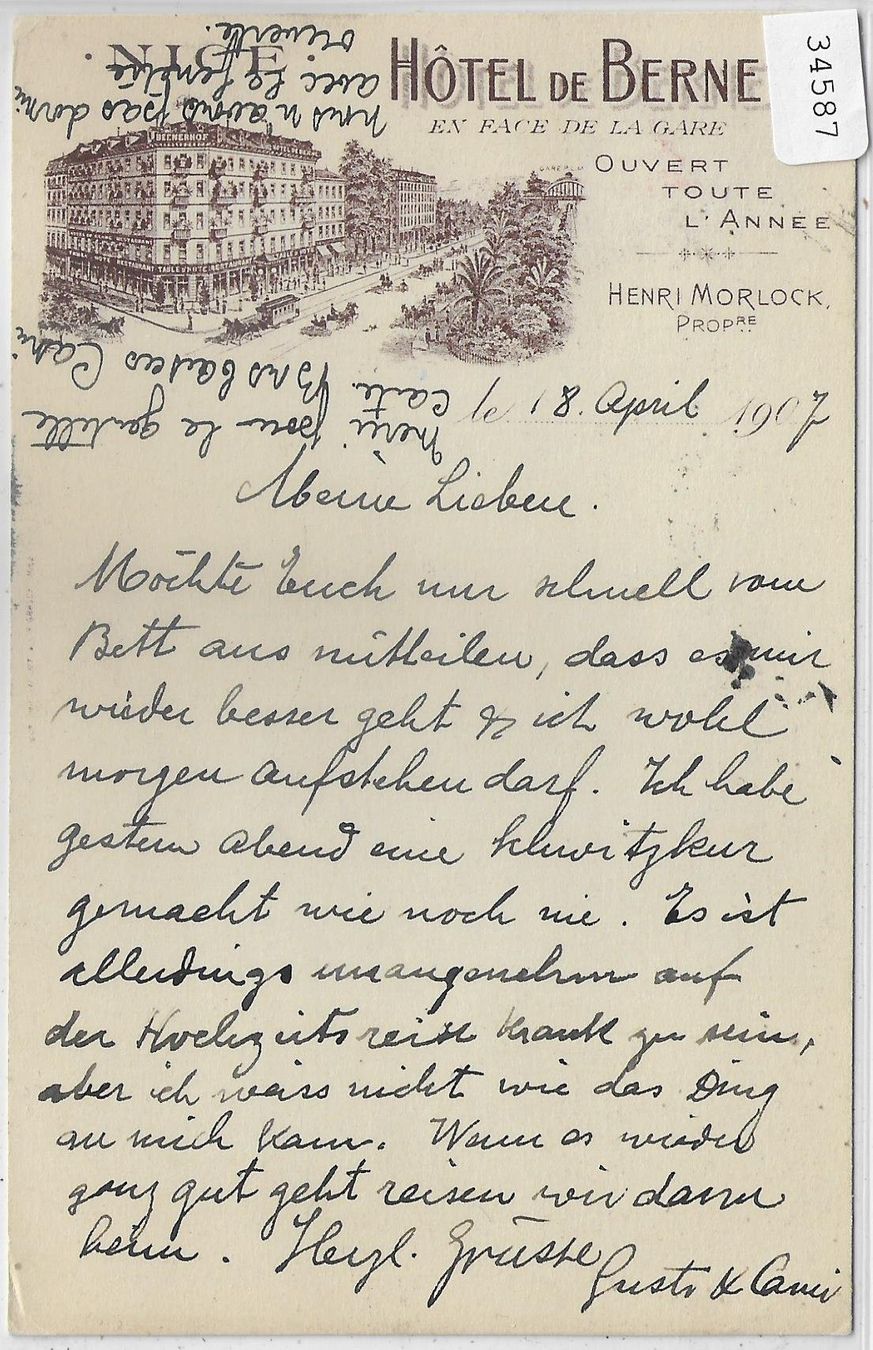 34587
NICE.
HÔTEL DE BERNE
EN FACE DE LA GARE
BERNERHOF
OUVERT
TOUTE
L'ANNÉE
HENRI MORLOCK,
PROPRE
le 18. April 1907
Meine Lieben.
Möchte Euch nur schnell vom
Bett aus mitteilen, dass es mir
wieder besser geht & ich wohl
morgen aufstehen darf. Ich habe
gestern Abend eine Schwitzkur
gemacht wie noch nie. Es ist
allerdings unangenehm auf
der Hochzeitsreise krank zu sein,
aber ich weiss nicht wie das Ding
an mich kam. Wenn es wieder
ganz gut geht reisen wir dann
heim. Herzl. Grüsse
Gusti & Cami
Merci pour la gentille
carte. Bons baisers Cami
nous n'avons pas dormi
avec la fenêtre
ouverte.